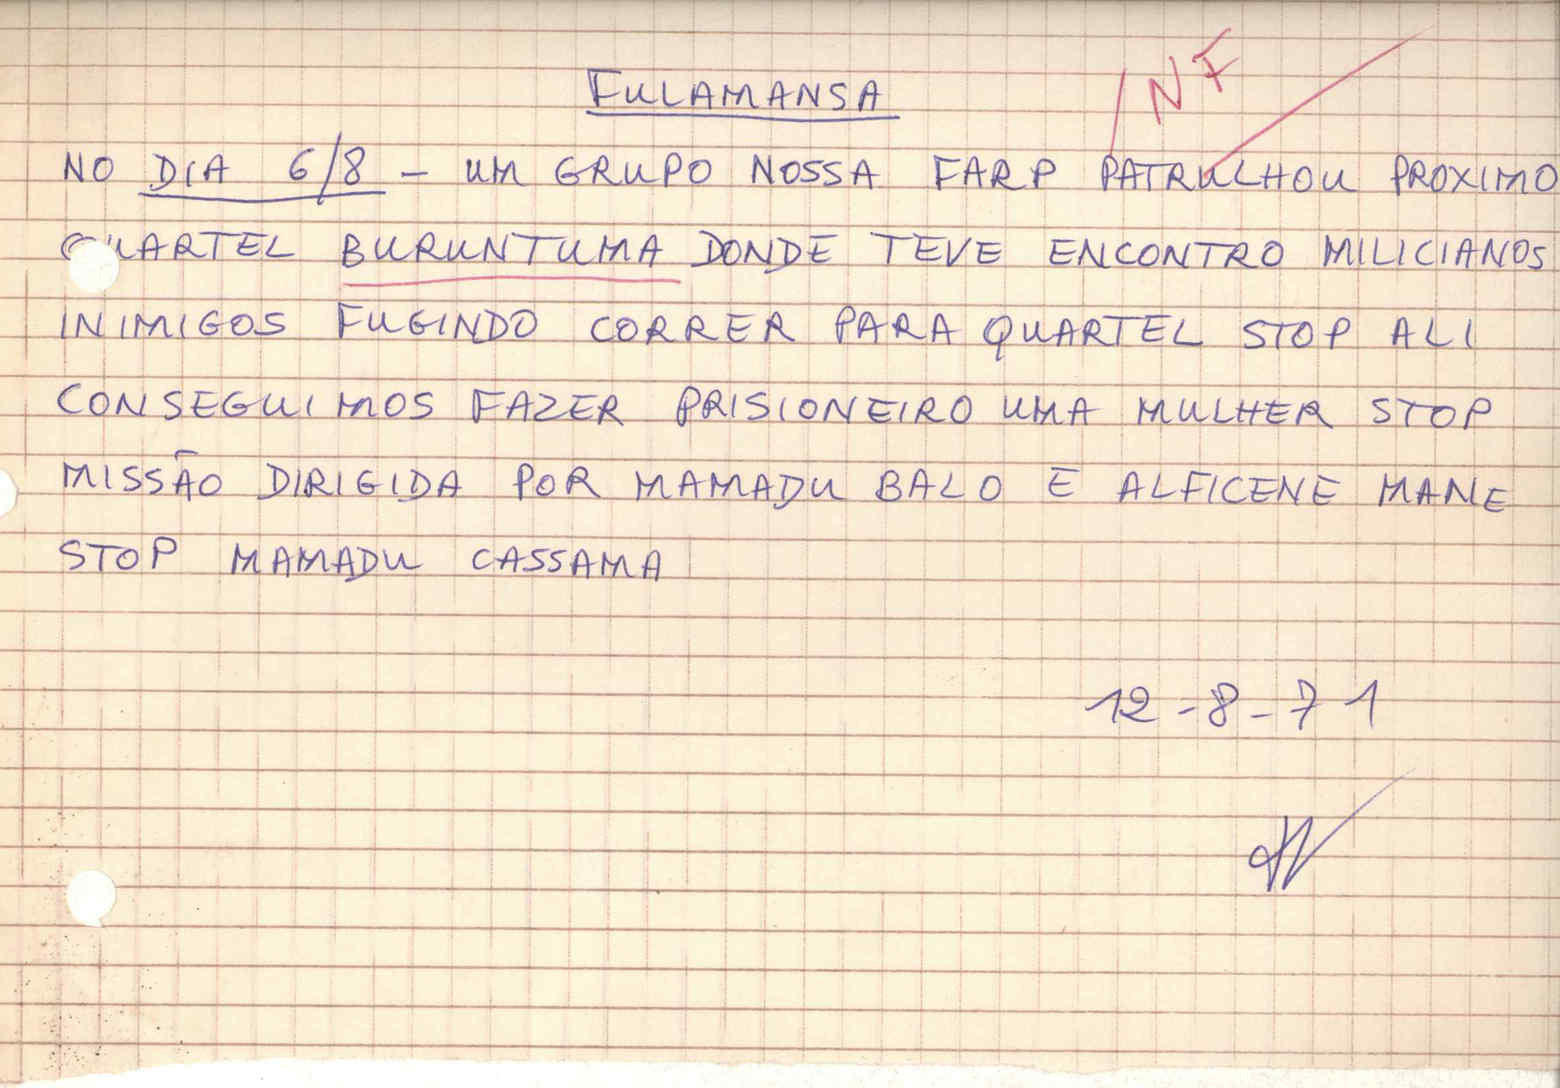 INF
FULAMANSA
NO DIA 6/8 - UM GRUPO NOSSA FARP PATRULHOU PROXIMO
QUARTEL BURUNTUMA DONDE TEVE ENCONTRO MILICIANOS
INIMIGOS FUGINDO CORRER PARA QUARTEL STOP ALI
CONSEGUIMOS FAZER PRISIONEIRO UMA MULHER STOP
MISSÃO DIRIGIDA POR MAMADU BALO E ALFICENE MANE
STOP MAMADU CASSAMA
12-8-71